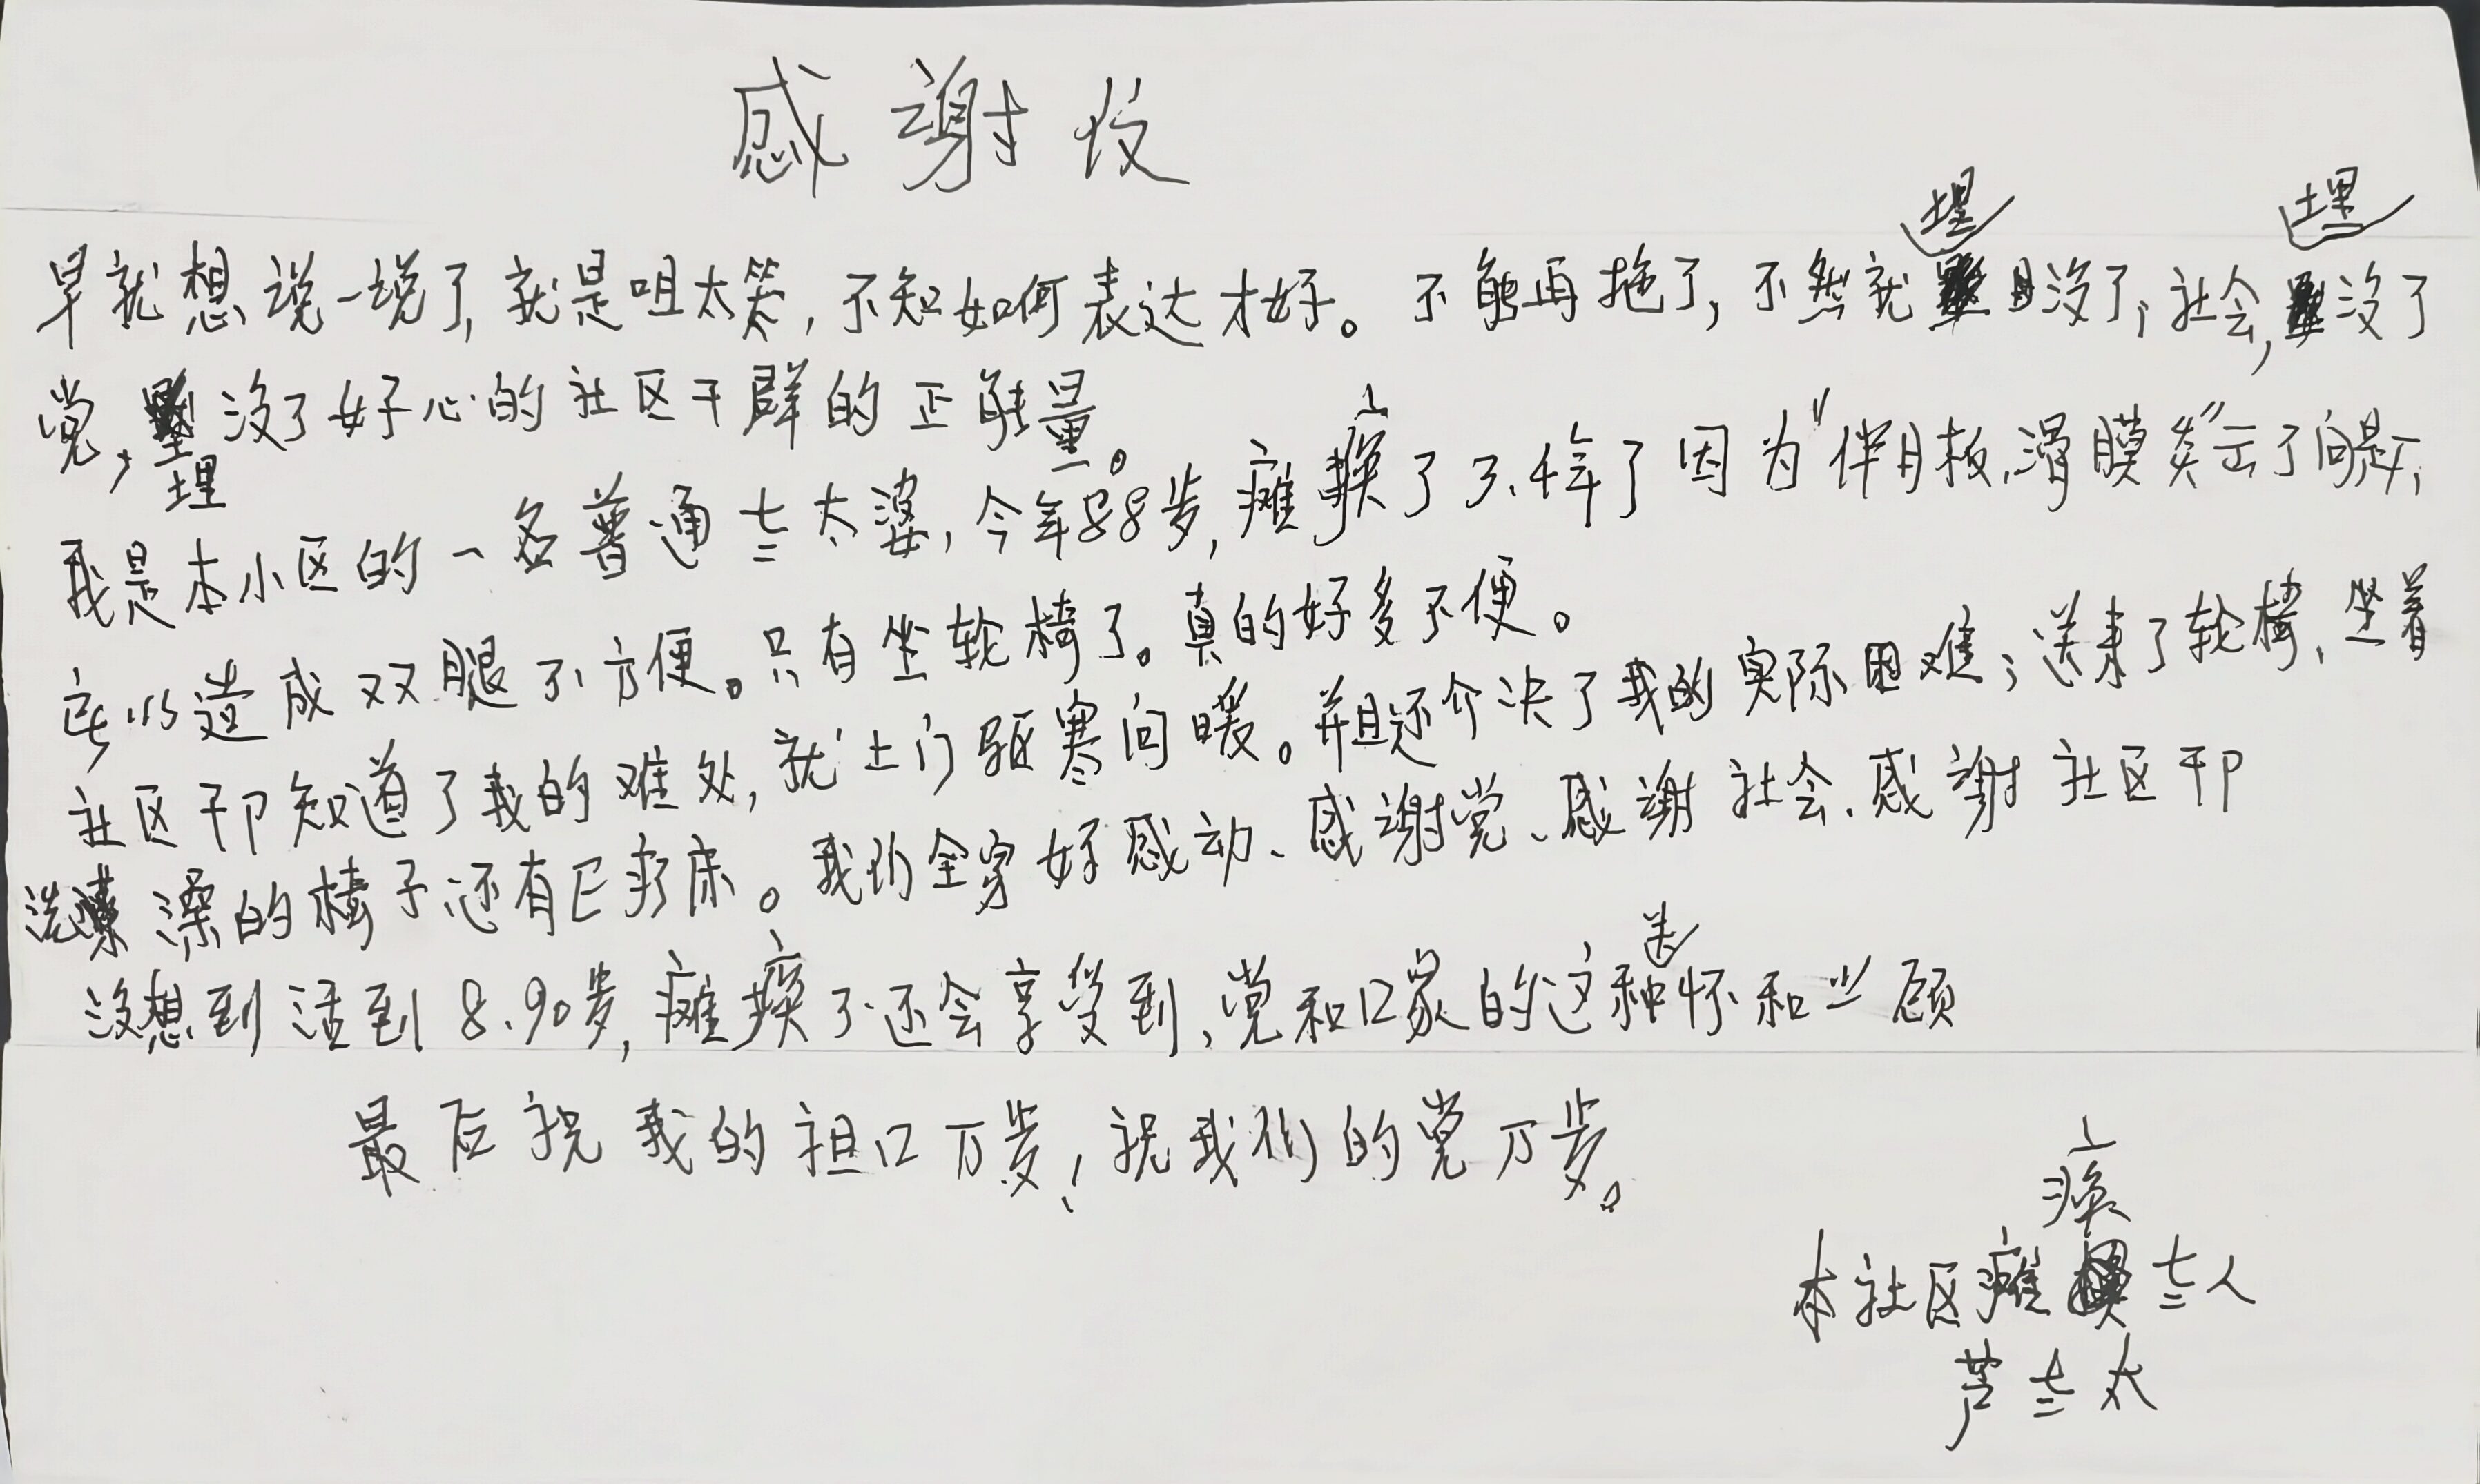 感谢役
早就想说一说了,就是咀太笨,不知如何表达才好。不能再拖了,不然就埋没了,社会,埋没了
党,埋没了好心的社区干群的正能量。
我是本小区的一名普通老太婆,今年88岁,瘫痪了3.4年了因为"伴月板.滑膜炎"云了问题,
所以造成双腿不方便。只有坐轮椅了。真的好多不便。
社区干卩知道了我的难处,就上门驱寒问暖。并且还介决了我的实际困难;送来了轮椅,坐着
洗澡的椅子还有医疗床。我们全家好感动、感谢党、感谢社会.感谢社区干卩
没想到活到8.90岁,瘫痪了还会享受到,党和囗家的这种关怀和照顾
最后祝我的祖囗万岁!祝我们的党万岁。
本社区瘫痪老人
芦老太